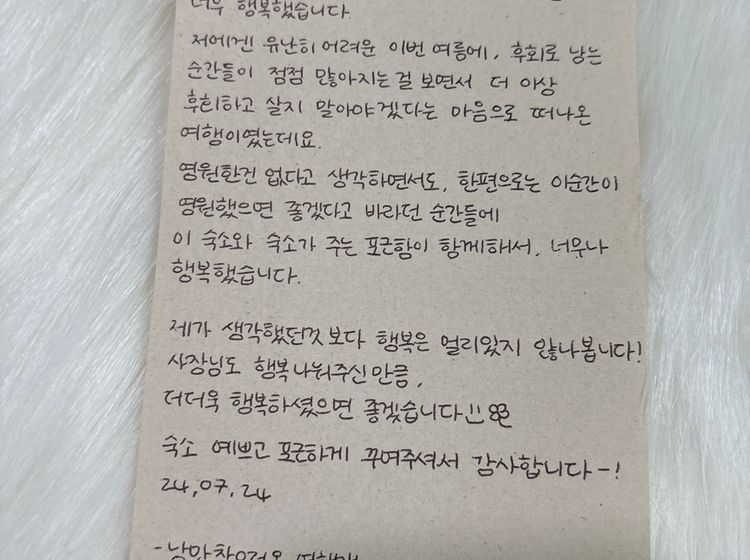 너무 행복했습니다.
저에겐 유난히 어려운 이번 여름에, 후회로 남는
순간들이 점점 많아지는 걸 보면서 더 이상
후회하고 살지 말아야겠다는 마음으로 떠나온
여행이였는데요.
영원한건 없다고 생각하면서도, 한편으로는 이순간이
영원했으면 좋겠다고 바라던 순간들에
이 숙소와 숙소가 주는 포근함이 함께해서, 너무나
행복했습니다.
제가 생각했던것 보다 행복은 멀리있지 않나봅니다!
사장님도 행복 나눠주신 만큼,
더더욱 행복하셨으면 좋겠습니다!!
숙소 예쁘고 포근하게 꾸며주셔서 감사합니다-!
24.07.24